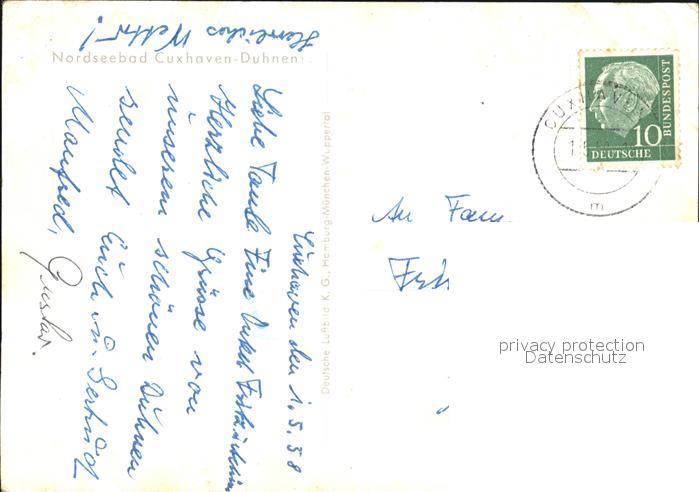 Herrliches Wetter!
Nordseebad Cuxhaven-Duhnen
Cuxhaven den 1.5.58
Liebe Tante Tine Onkel
Herzliche Grüsse von
unserem schönen Duhnen
sendet Euch
Manfred,
Gustav.
Deutsche Luftbild K. G., Hamburg-München-Wuppertal
An Fam
CUXHAVEN
m
10
DEUTSCHE
BUNDESPOST
privacy protection
Datenschutz